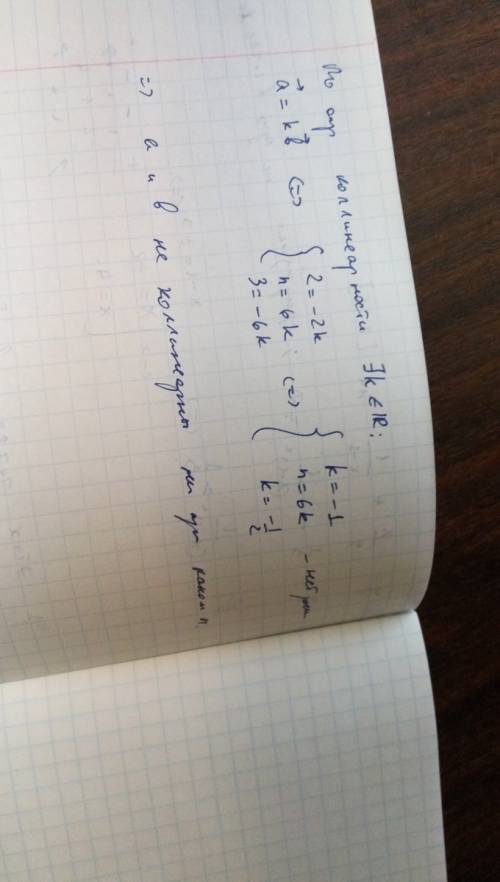 По опр коллинеарности ∃k∈ℝ:
a⃗ = kb⃗ (=) { 2 = -2k n = 6k 3 = -6k (=) { k = -1 n = 6k k = -1/2 - нет реш
=> a и b не коллинеарны ни при каком n.